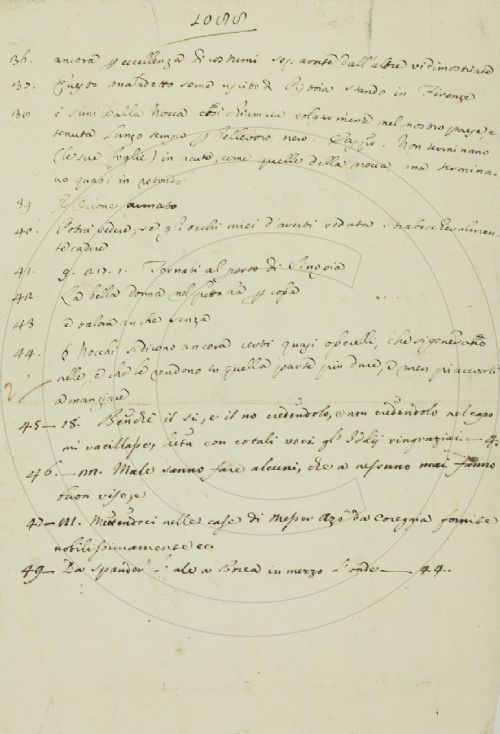 1088
36. ancora eccellenza di costumi separate dall'altre
37. Questo maladetto seme Pistoia stando in Firenze
38. è simile alla Nocca chiamata volgarmente nel nostro paese e
tenuta lungo tempo Elleboro nero. Non terminano
(le sue foglie) in acuto, come quelle della nocca, ma termina-
no quasi in rotondo
39 armato
40. se gl'occhi miei d'averti veduta
cadere
41. 9. Tornati al porto di
42. La bella donna nel
43 e talora anche senza
44. Nocchi si dicono ancora certi quasi che si generano
nelle, e che le rendono in quella parte più dure, e men piacevoli
a mangiare
2
45 — 18. Benchè il si, e il no credendolo, e non credendolo nel capo
mi vacillasse, lieta con cotali voci gl' Iddij ringraziai — 4.
46. — m. Male sanno fare alcuni, che a nessuno mai fanno
buon viso, e
47 — nelle case di Messer Azo da Coreggia fornite
nobilissimamente ec.
49 — Da spander l'ale a Borea in mezzo l'onde — 44.